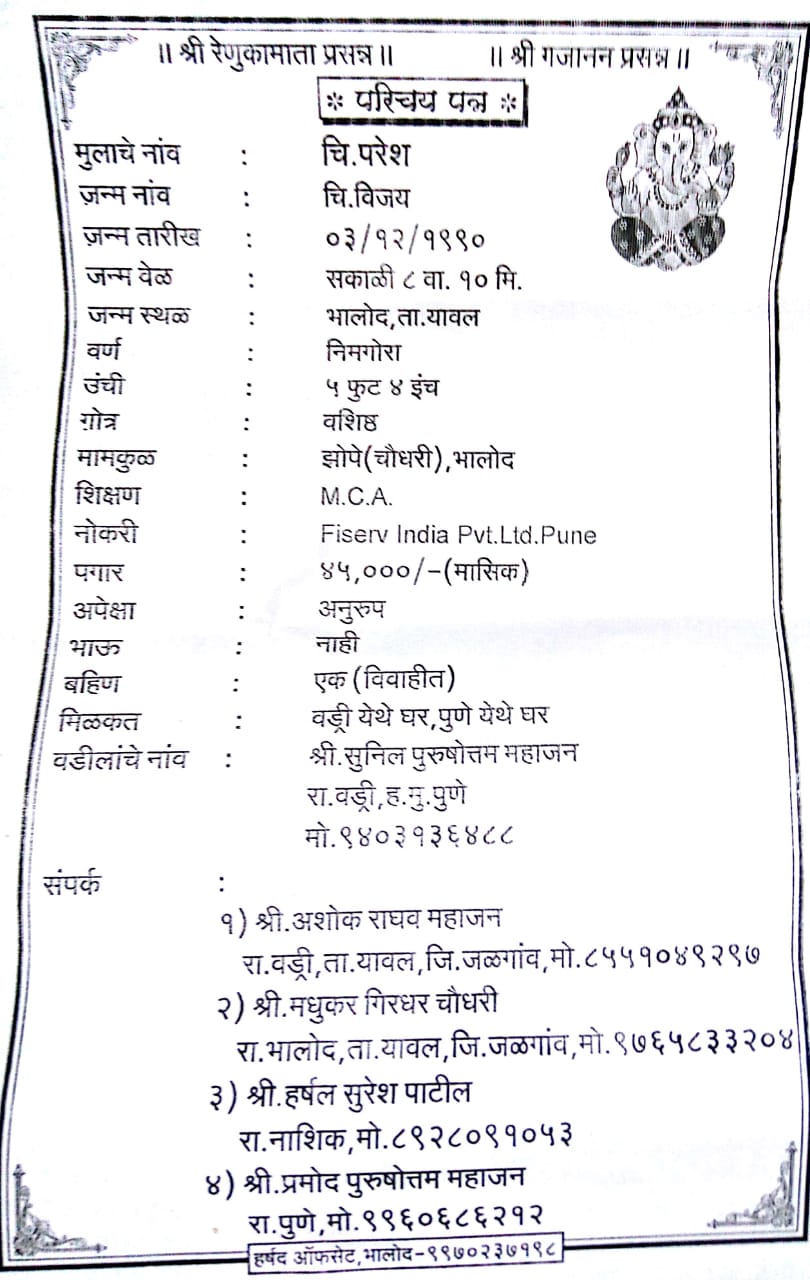 ॥ श्री रेणुकामाता प्रसन्न॥ ॥ श्री गजानन प्रसन्न॥
* परिचय पत्र *
मुलाचे नांव : चि.परेश
जन्म नांव : चि.विजय
जन्म तारीख : ०३/१२/१९९०
जन्म वेळ : सकाळी ८ वा. १० मि.
जन्म स्थळ : भालोद,ता.यावल
वर्ण : निमगोरा
उंची : ५ फुट ४ इंच
गोत्र : वशिष्ठ
मामकुळ : झोपे(चौधरी),भालोद
शिक्षण : M.C.A.
नोकरी : Fiserv India Pvt.Ltd.Pune
पगार : ४५,०००/-(मासिक)
अपेक्षा : अनुरुप
भाऊ : नाही
बहिण : एक (विवाहीत)
मिळकत : वड्री येथे घर,पुणे येथे घर
वडीलांचे नांव : श्री.सुनिल पुरुषोत्तम महाजन
रा.वड्री,ह.मु.पुणे
मो.९४०३१३६४८८
संपर्क :
१) श्री.अशोक राघव महाजन
रा.वड्री,ता.यावल,जि.जळगांव,मो.८५५१०४९२९७
२) श्री.मधुकर गिरधर चौधरी
रा.भालोद,ता.यावल,जि.जळगांव,मो.९७६५८३३२०४
३) श्री.हर्षल सुरेश पाटील
रा.नाशिक,मो.८९२८०९१०५३
४) श्री.प्रमोद पुरुषोत्तम महाजन
रा.पुणे,मो.९९६०६८६२१२
हर्षद ऑफसेट,भालोद-९९७०२३७१९८